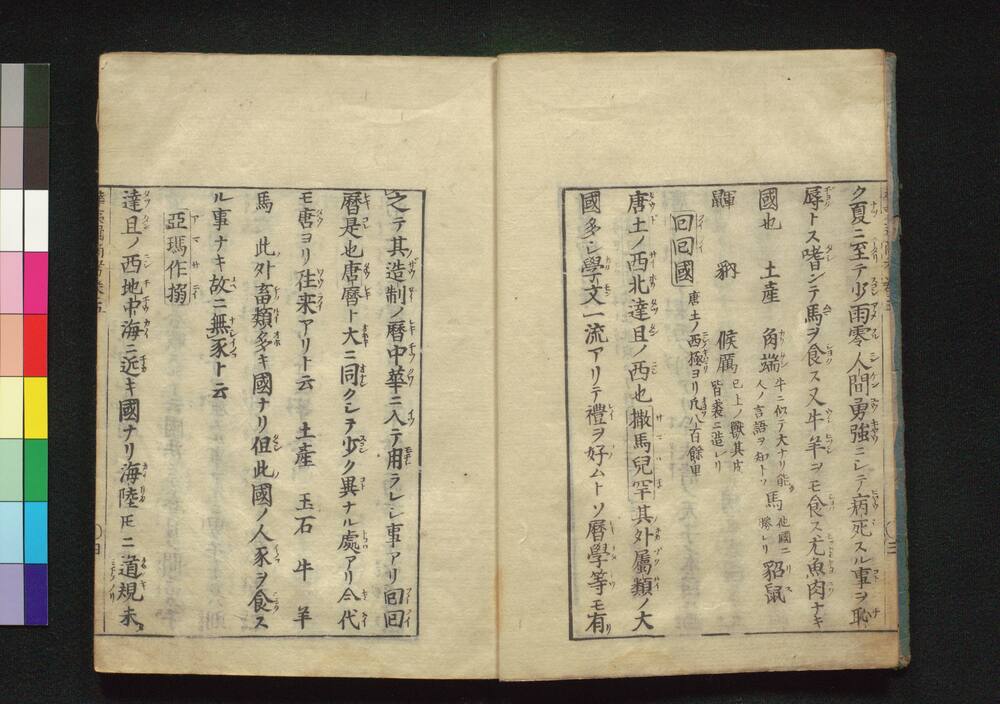 ク夏ニ至テ少雨零人間勇強ニシテ病死スル事ヲ恥
辱トス嗜ンテ馬ヲ食ス又牛羊ヲモ食ス尤魚肉ナキ
國也 土産 角端 牛ニ似テ大ナリ能人ノ言語ヲ知トソ 馬 他國ニ勝レリ 貂鼠
貚 豽 候厲 已上ノ獸其皮皆裘ニ造レリ
回回國 唐土ノ西極ヨリ凡八百餘里
唐土ノ西北達且ノ西也撒馬兒罕其外屬類ノ大
國多シ學文一流アリテ禮ヲ好ムトソ曆學等モ有
之テ其造制ノ曆中華ニ入テ用ラレシ事アリ回回
曆是也唐曆ト大ニ同クシテ少ク異ナル處アリ今代
モ唐ヨリ往来アリト云 土産 玉石 牛 羊
馬 此外畜類多キ國ナリ但此國ノ人豕ヲ食ス
ル事ナキ故ニ無豕ト云
亞瑪作搦
達且ノ西地中海ニ近キ國ナリ海陸圧ニ道規未